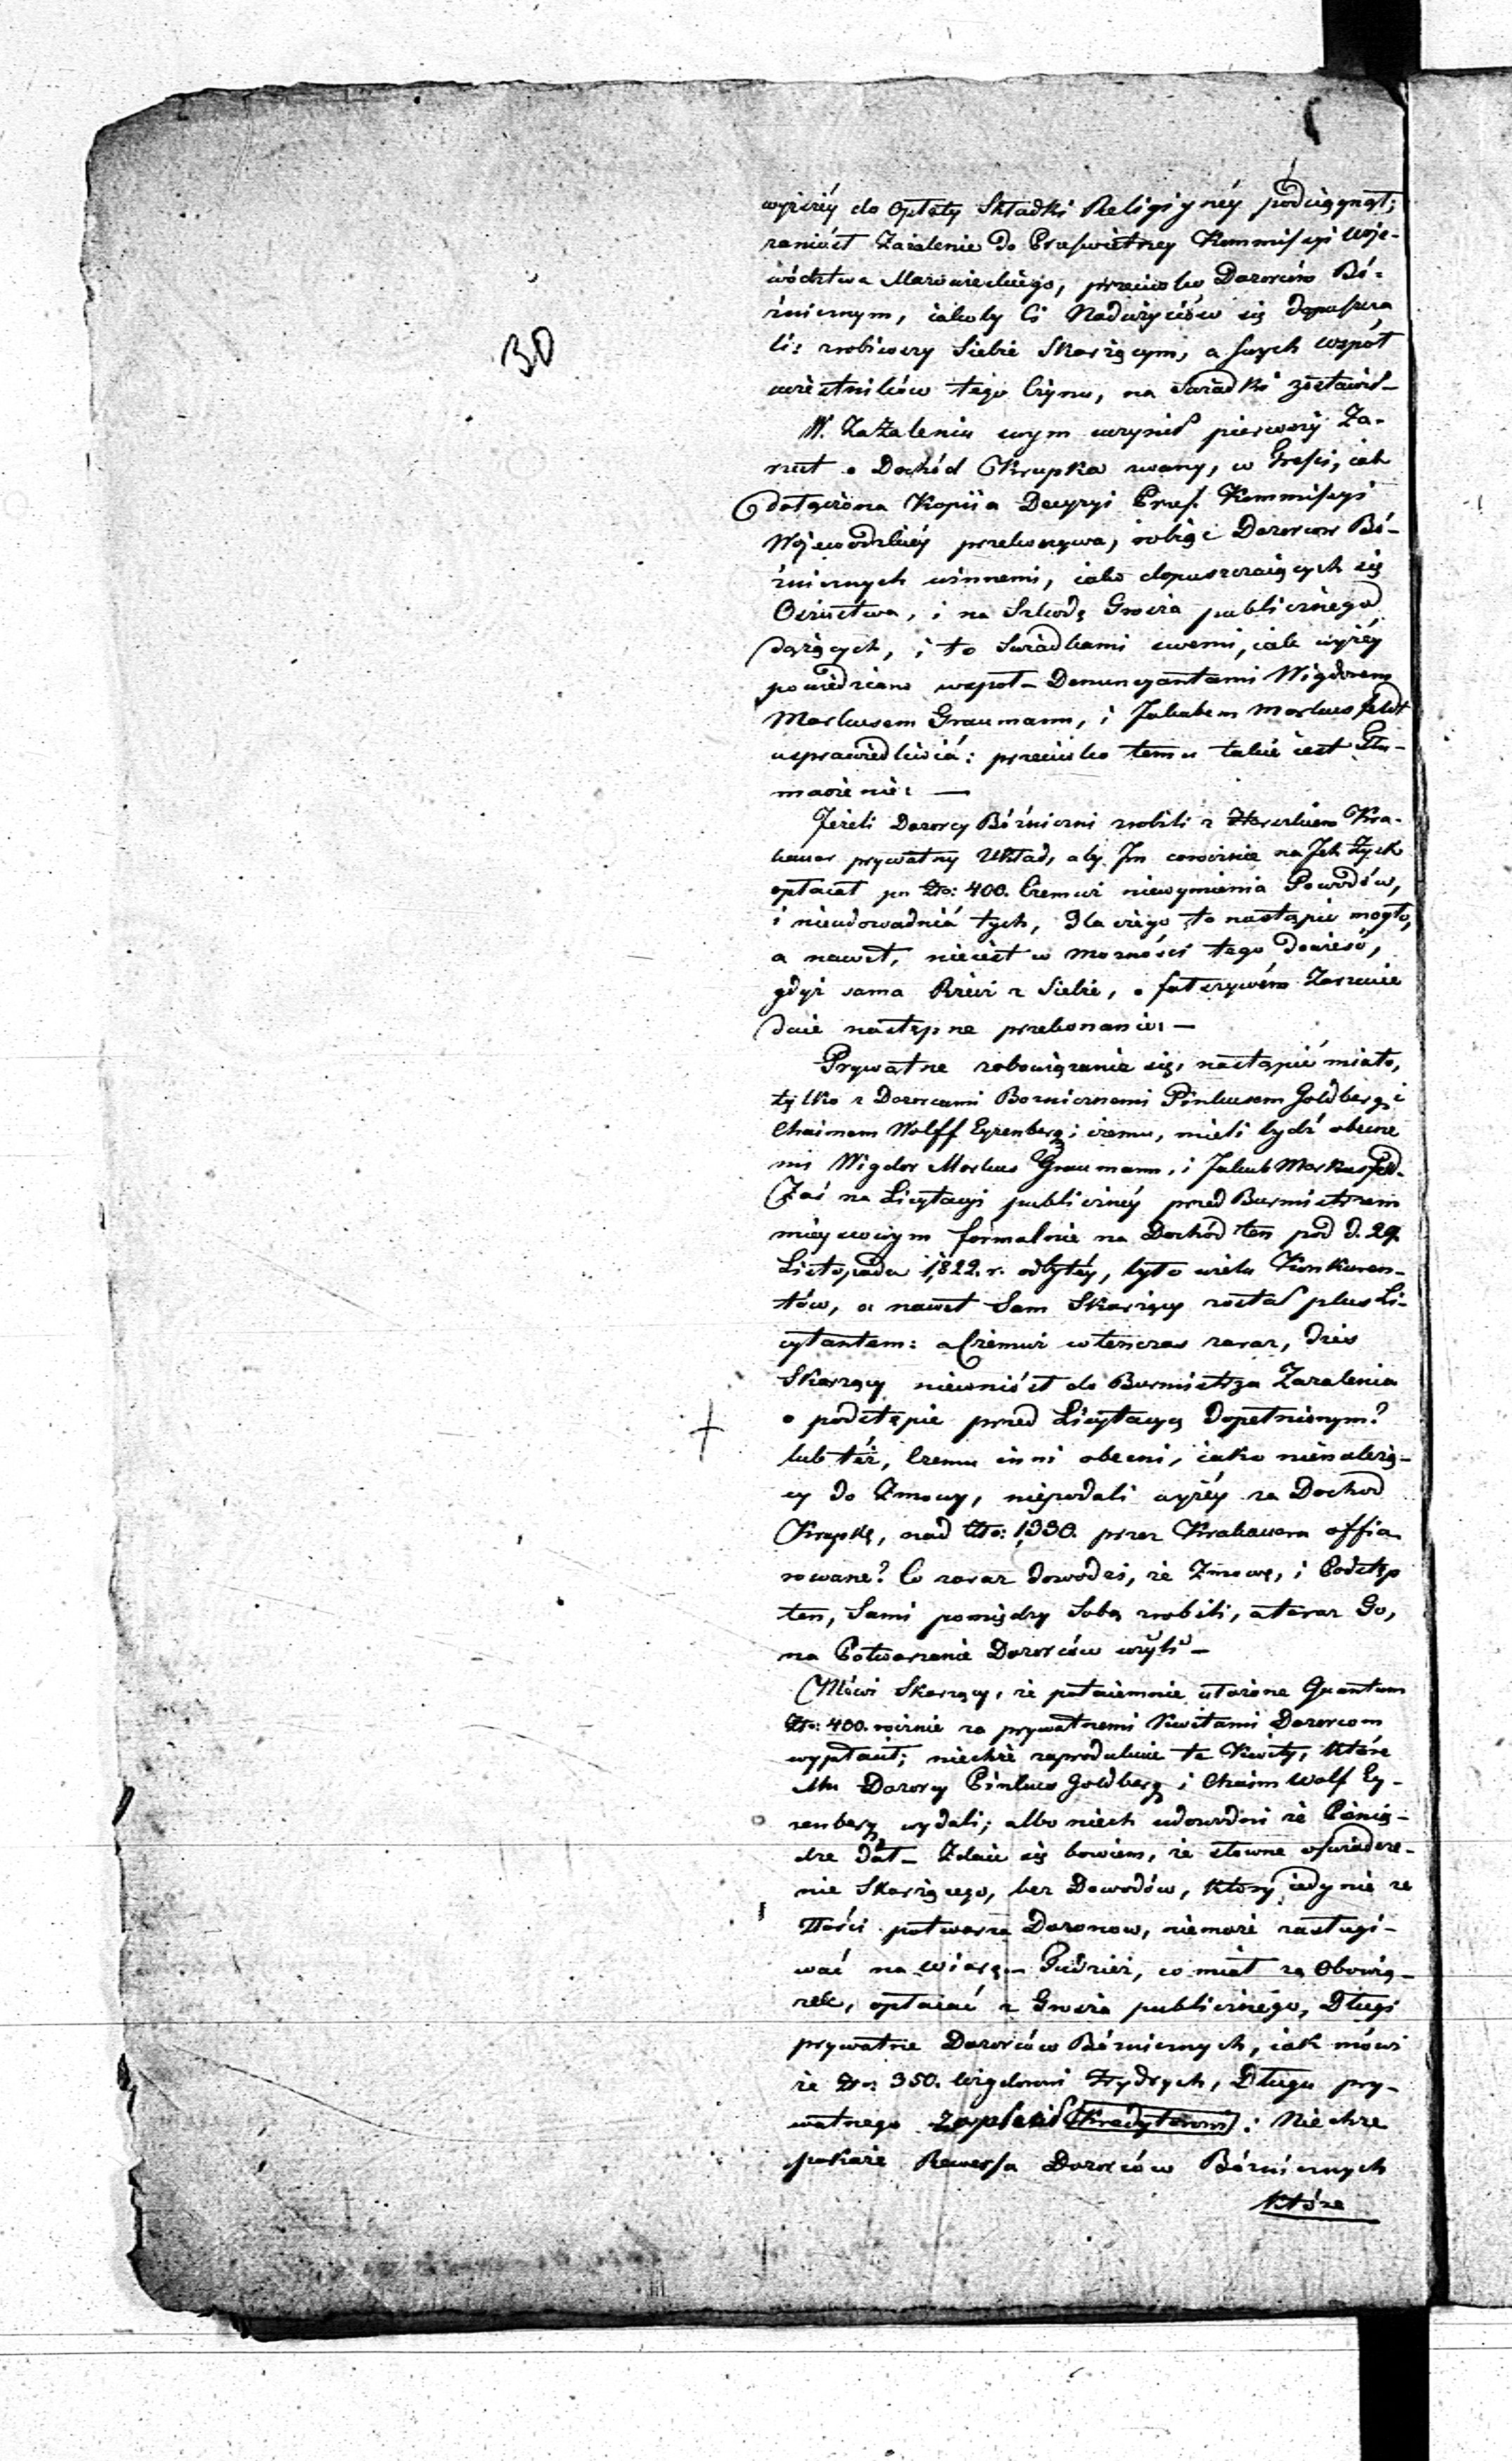 30
wyżéy do Opłaty Składki Religiynéy podciągnął;
zaniósł Zażalenie do Prześwietney Kommifsyi Woje-
wództwa Mazowieckiego, przeciwko Dozorcóm Bó-
źnicznym, iakoby Ci Nadużyciów się dopuszcza
li: zrobiwszy Siebie Skarżącym, a swych współ
uczestników tego Czynu, na Świadki zostawił –
W. Zażaleniu swym uczynił pierwszy Za-
rzut o Dochód Krupka zwany, w Treści, iak
dołączona Kopiia Decyzyi Prześ. Kommifsyi
Wojewódzkiéy przekonywa, robiąc Dozorców Bó-
źnicznych winnemi, iako dopuszczaiących się
Oszustwa, i na Szkodę Grosza publicznego
dążących, i to Swiadkami swemi, iak wyżéy
powiedziano wspoł – Denuncyantami Wigdorem
Markusem Graumann, i Jakubem Markus Feld
usprawiedliwia: przeciwko temu takie iest Tłu-
maczenie: —
Jeżeli Dozorcy Bóźniczni zrobili z Kra-
kauer prywatny Układ, aby Im corocznie na Ich Zysk
opłacał po Złto: 400. Czemuż niewymienia Powodów,
i nieudowadnia tych, dla czego to nastąpić mogło,
a nawet, nieiest w możności tego dowieść,
gdyż sama Rzecz z Siebie, o fałszywém Zarzucie
daie następne przekonanie: —
Prywatne zobowiązanie się, nastąpić miało,
tylko z Dozorcami Boznicznemi Pinkusem Goldberg i
Chaimem Wolff Eyzenberg; czemu, mieli bydź obecne
mi Wigdor Markus Graumann, i Jakub Markus Feld.
Zaś na Licytacyi publicznéy przed Burmistrzem
mieyscowym formalnie na Dochód ten pod d. 29.
Listopada 1822. r. odbytéy, było wielu Konkuren-
tów, a nawet Sam Skarżący został plus Li-
cytantem: a Czemuż wtenczas zaraz, dziś
Skarżący niewniósł do Burmistrza Zażalenia
o podstępie przed Licytacyą dopełnionym?
lub téż, Czemu inni obecni, iako nienależą-
cy do Zmowy, niepodali wyżéy za Dochod
Krupkę, nad Złto: 1330. przez Krakauera offia
rowane? Co zaraz dowodzi, że Zmowę, i Podstęp
ten, Sami pomiędzy Sobą zrobili, a teraz Go,
na Potwarzanie Dozorców użyli –
Mówi Skarżący, że potaiemnie ułożone Quantum
Złto: 400. rocznie za prywatnemi Kwitami Dozorcom
wypłacił; niechże zaprodukuie te Kwity, które
Mu Dozorcy Pinkus Goldberg i Chaim Wolf Ey-
zenberg wydali; albo niech udowodni że Pienią-
dze dał – Zdaie się bowiem, że słowne oświadcze-
nie Skarżącego, bez Dowodów, który iedynie ze
Złości potwarza Dozorcow, niemoże zasługi-
wać na wiarę – Gudzież, co miał za Obowią-
zek, opłacać z Grosza publicznego, Długi
prywatne Dozorców Bóźnicznych, iak mówi
że Złto: 350. Długu pry-
watnego zapłacił Kredytorowi: Niechże
pokaże Rewersa Dozorców Bóźnicznych
które